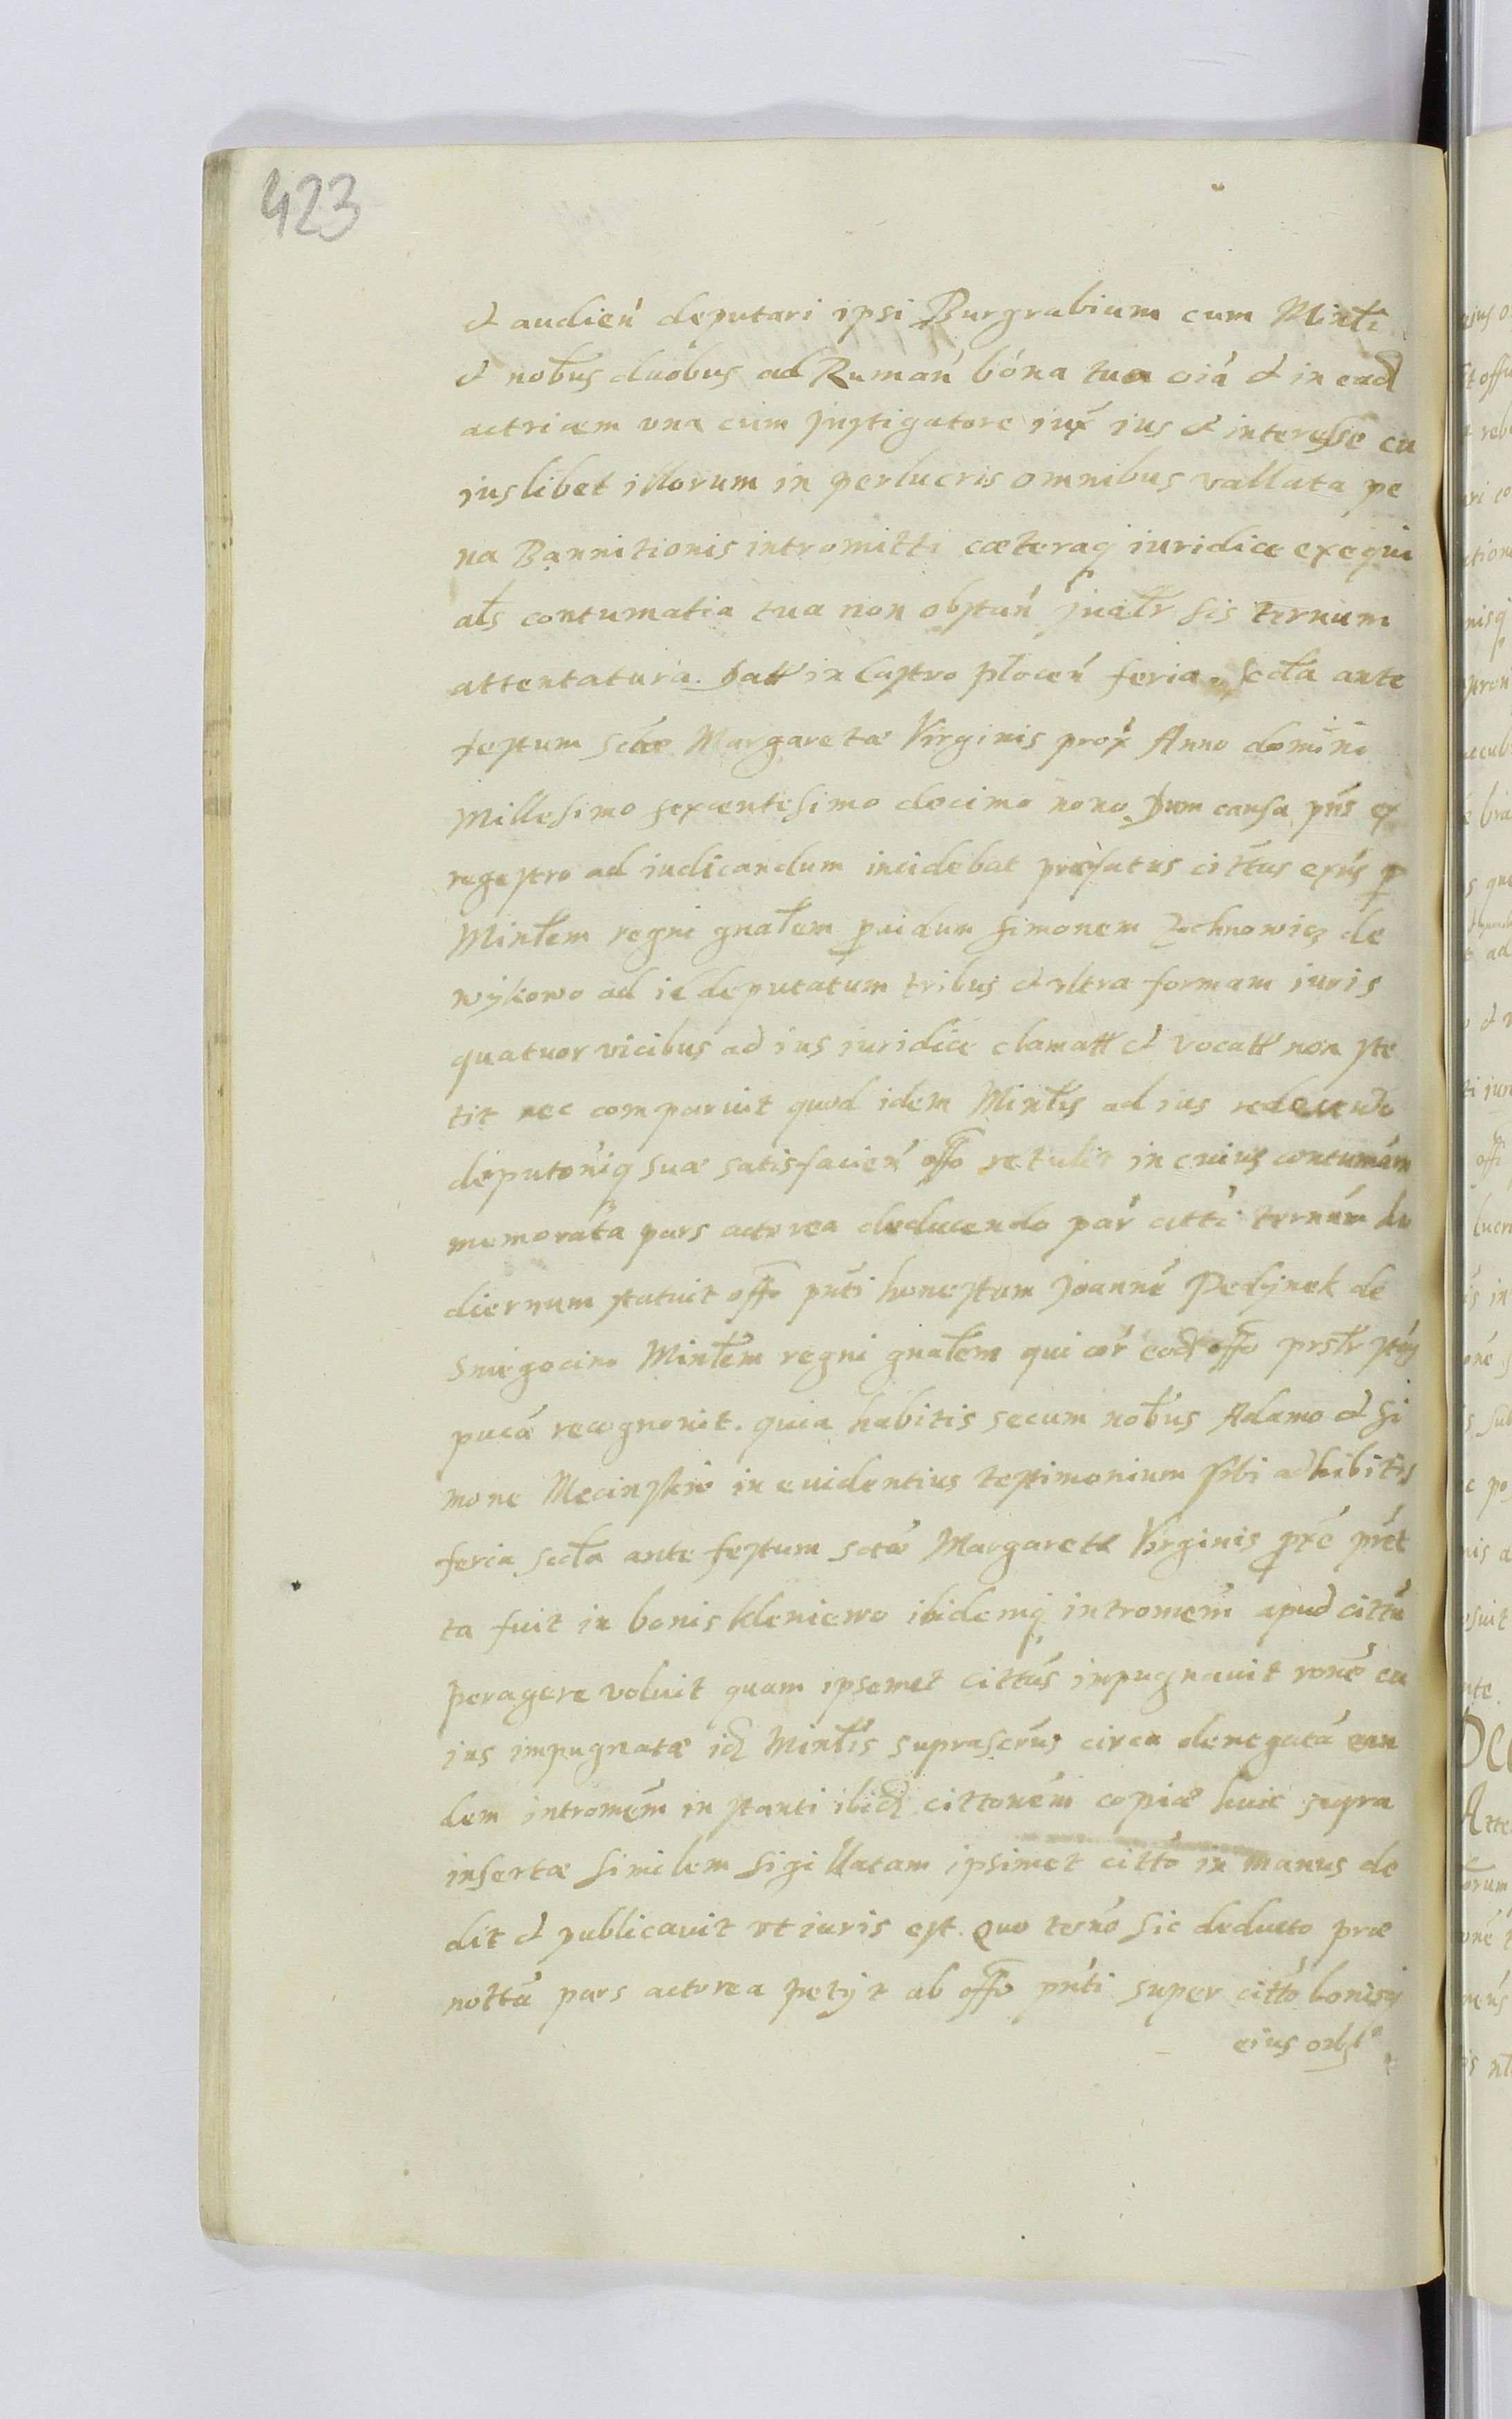 423
& audień deputari ipsi Burgrabium cum Minłi
& nobłbus duobus ad Rumań bona tua oia & in ead
actricem vna cum Instigatore iux ius & interesse cu
iuslibet illorum in perlucris omnibus vallata pe
na Bannitionis intromitti cæteraq iuridice exequi
ałs contumatia tua non obstań Juałr sis ternum
attentatura. Datt in Castro płocen feria Scda ante
festum sctæ Margaretæ Virginis prox Anno domini
Millesimo sexcentesimo decimo nono. Dum causa pńs ex
regestro ad iudicandum incidebat præfatus cittus exńs p
Minłem regni gnałem puidum Simonem Zochnowicz de
Wykowo ad id deputatum tribus & vltra formam iuris
quatuor vicibus ad ius iuridice clamatt & vocatt non ste
tit nec comparuit quod idem Minłis ad ius redeundo
deputoniq suæ satisfacień offo retulit in cuius contumám
memorata pars actorea deducendo par citti ternum ho
diernum statuit offo pnti honestum Joanne Pedynek de
Smiegocino Minłem regni gnałem qui cor eod offo prsłr stńs
pucá recognouit. quia habitis secum nobłbus Adamo & Si
mone Mecinskie in euidentius testimonium sibi adhibitis
feria scda ante festum sctæ Margaretæ Virginis pxe præt
ta fuit in bonis Kleniewo ibidemq intromem apud cittu
peragere voluit quam ipsemet cittus impugnauit rone cu
ius impugnatæ id Minłis suprascrus circa denegatá ean
dem intromem in stanti ibid cittonem copiæ huic supra
insertæ similem sigillatam ipsimet citto in manus de
dit & publicauit vt iuris est. Quo terno sic deducto præ
nottá pars actorea petyt ab offo pnti super citto bonisq
eius